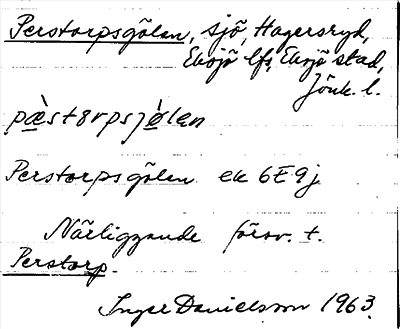 Perstorpsgölen, sjö, Hagersryd,
Eksjö lfs, Eksjö stad,
Jönk. l.
pæ̀stɤrpsjø̀lan
Perstorpsgölen ek 6E9j
Närliggande försv. t.
Perstorp.
Inger Danielsson 1963.